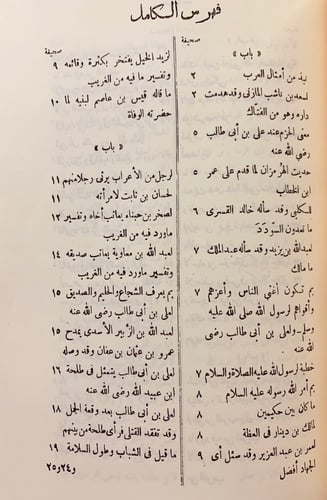 فهرس الكامل
صحيفة
« باب »
نبذ من أمثال العرب ٢
لسعد بن ناشب المازنى وقد هدمت ٢
داره وهو من الفتاك
معنى الحزم عند على بن أبى طالب ٥
رضى الله عنه
حديث الهرمزان لما قدم على عمر ٥
ابن الخطاب
للكلبى وقد سأله خالد القسرى ٦
ما تعدون السؤدد
لعبد الله بن يزيد وقد سأله عبد الملك ٧
ما مالك
بم تكون أغنى الناس وأعزهم ٧
وأقواهم لرسول الله صلى الله عليه
وسلم ولعلى بن أبى طالب رضى
الله عنه
خطبة لرسول الله عليه الصلاة والسلام ٧
بم أمر الله رسوله عليه السلام ٨
ما كان بين حكيمين ٨
لمالك بن دينار فى العظة ٨
لعمر بن عبد العزيز وقد سئل أى ٩
الجهاد أفضل
صحيفة
لزيد الخيل يفتخر بكثرة وقائعه ٩
وتفسير ما فيه من الغريب
ما قاله قيس بن عاصم لبنيه لما ١٠
حضرته الوفاة
« باب »
لرجل من الأعراب يرثى رجلا منهم ١١
لحسان بن ثابت لامرأته ١١
لصخر بن حبناء يعاتب أخاه وتفسير ١٣
ما ورد فيه من الغريب
لعبد الله بن معاوية يعاتب صديقه ١٤
وتفسير ما فيه من الغريب
بم يعرف الشجاع والحليم والصديق ١٥
لعلى بن أبى طالب رضى الله عنه
لعبد الله بن الزبير الأسدى يمدح ١٥
عمرو بن عثمان بن عفان وقد وصله
لعلى بن أبى طالب يتمثل فى طلحة ١٦
ابن عبيد الله رضى الله عنه
لعلى بن أبى طالب بعد وقعة الجمل ١٨
وقد تفقد القتلى فرأى طلحة من بينهم
ما قيل فى الشباب وطول السلامة ١٩
و٢٤ و٢٥